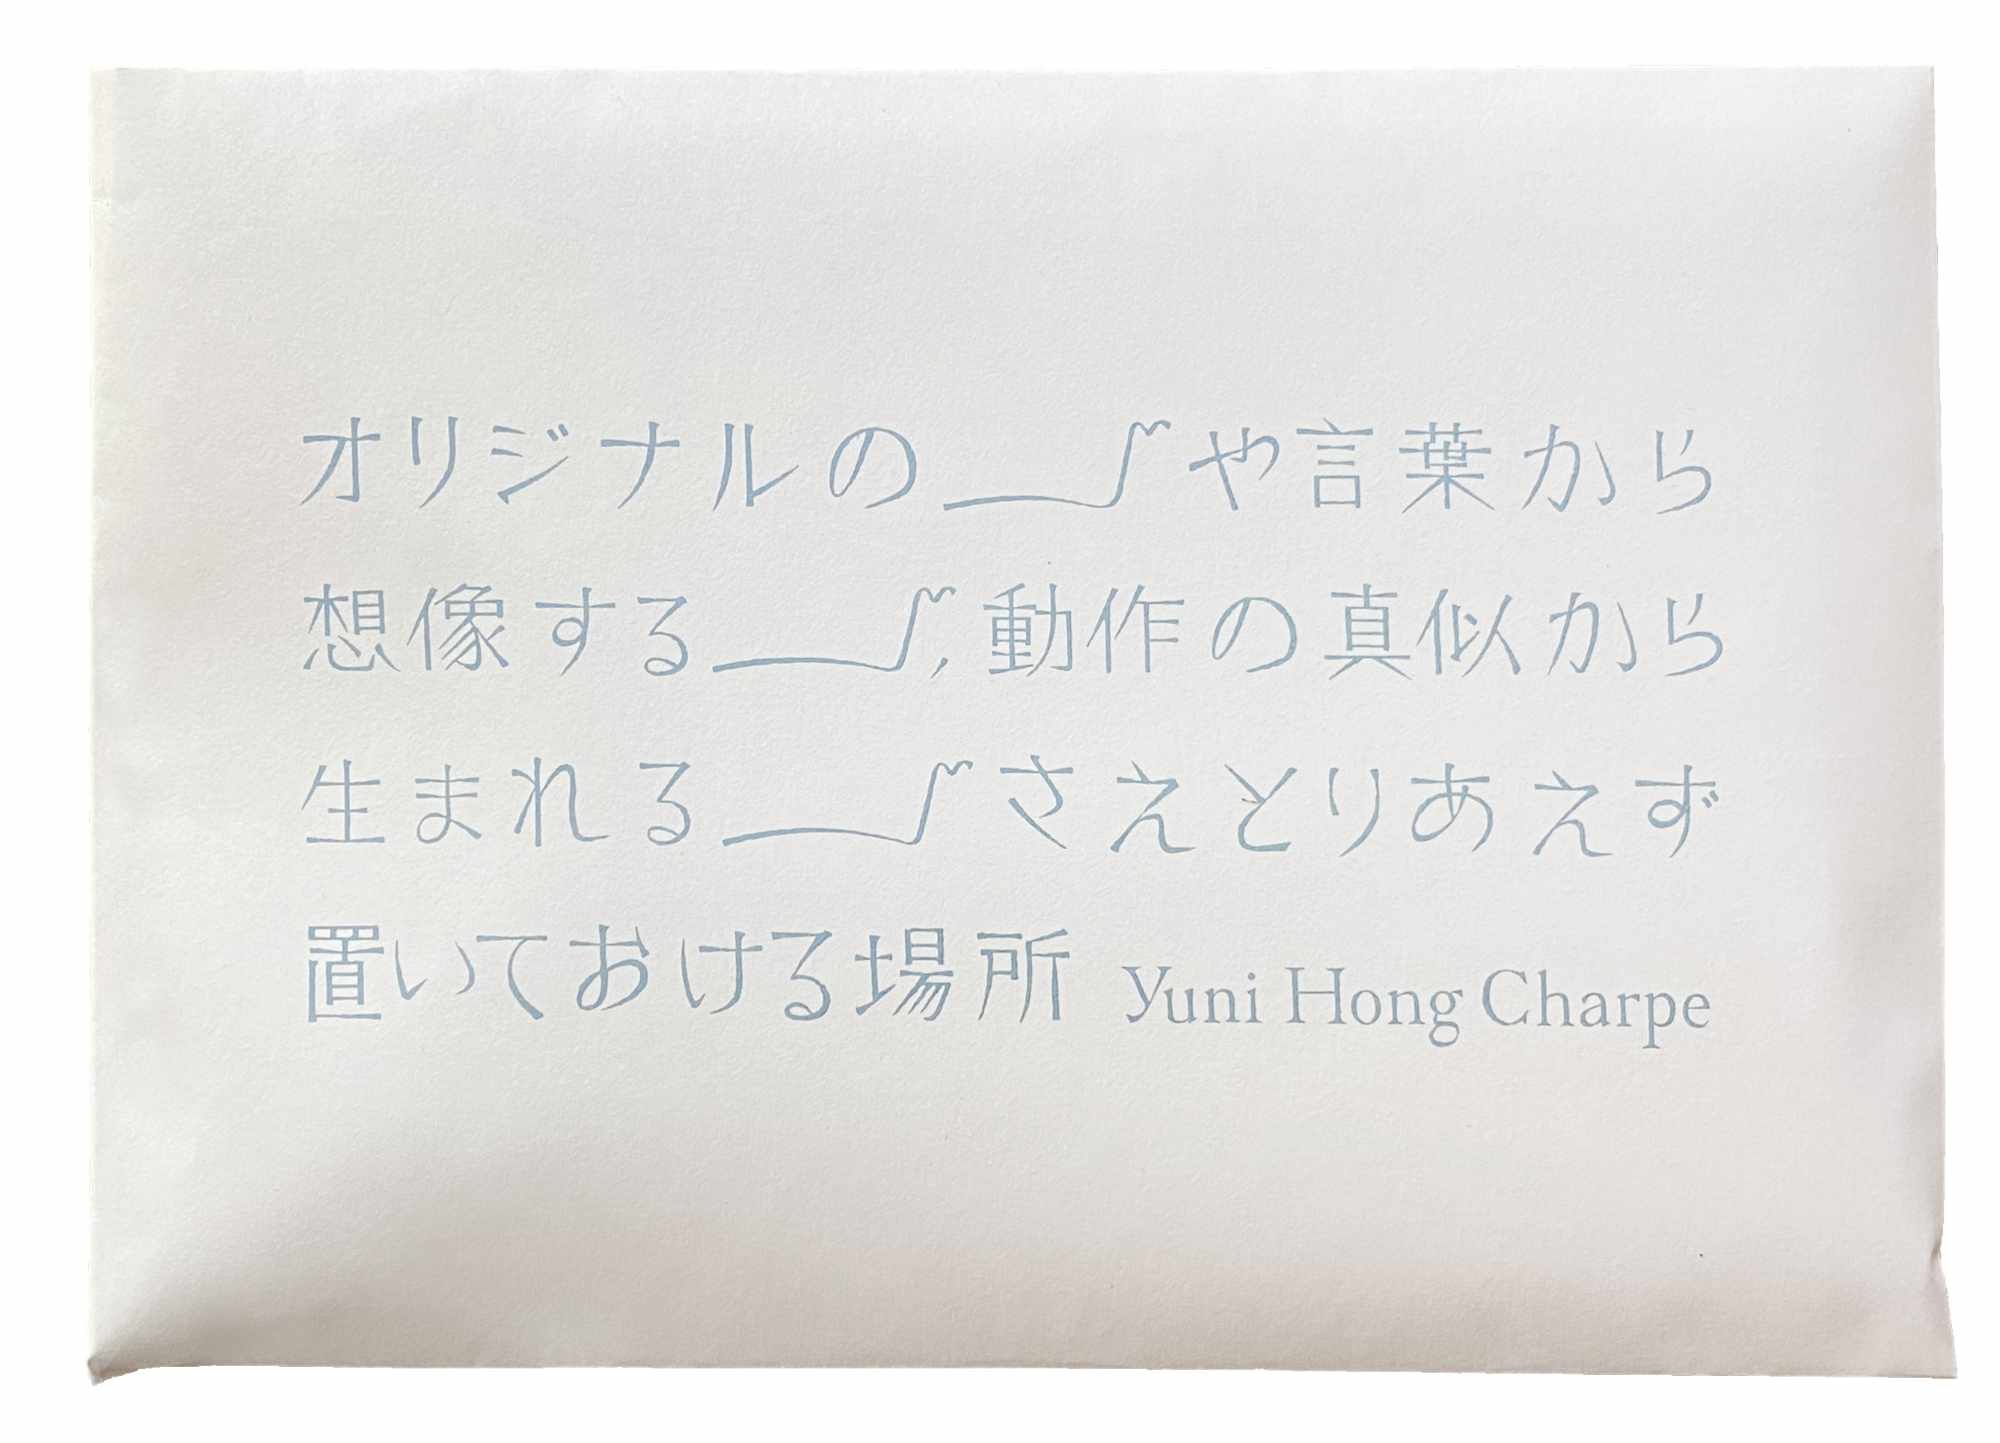 オリジナルの や言葉から
想像する , 動作の真似から
生まれる さえとりあえず
置いておける場所 Yuni Hong Charpe